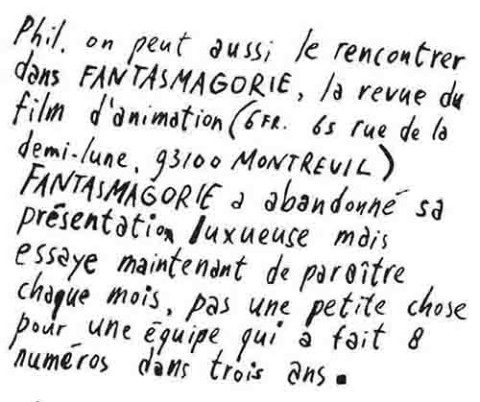 Phil. on peut aussi le rencontrer
dans FANTASMAGORIE, la revue du
film d'animation (6FR. 65 rue de la
demi-lune, 93100 MONTREUIL)
FANTASMAGORIE a abandonné sa
présentation luxueuse mais
essaye maintenant de paraître
chaque mois, pas une petite chose
pour une équipe qui a fait 8
numéros dans trois ans.